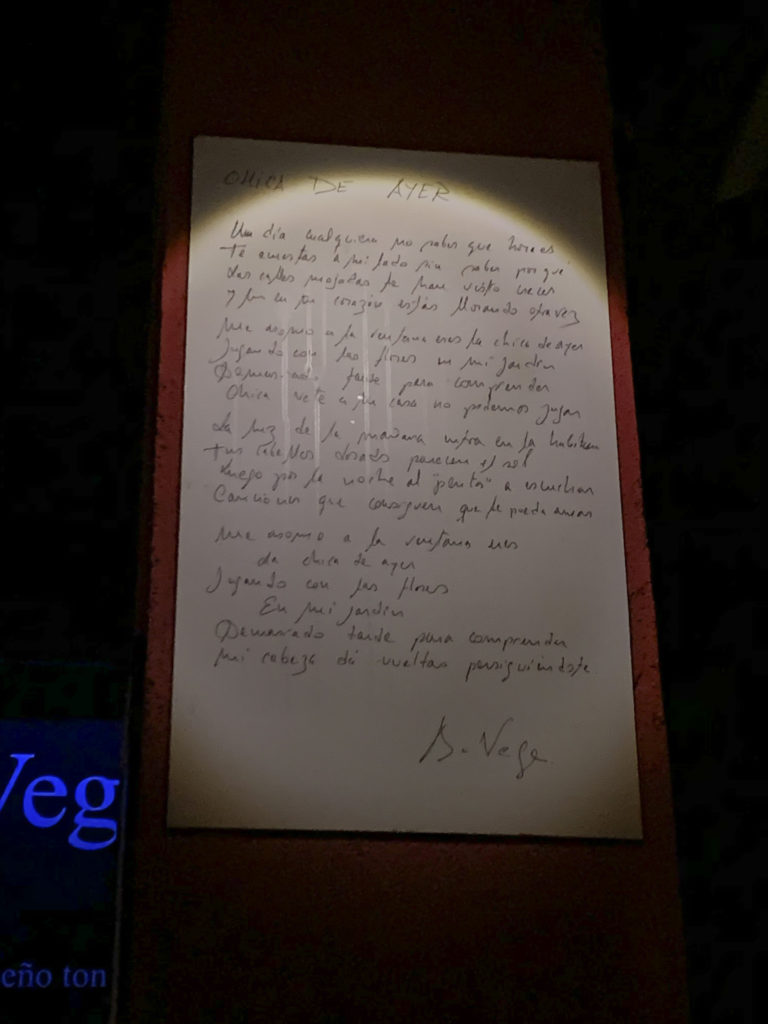 CHICA DE AYER
Un día cualquiera no sabes que hora es
Te acuestas a mi lado sin saber por qué
Las calles mojadas te han visto crecer
Y tu en tu corazón estás llorando otra vez
Me asomo a la ventana eres la chica de ayer
Jugando con las flores en mi jardin
Demasiado tarde para comprender
Chica vete a tu casa no podemos jugar
La luz de la mañana entra en la habitacion
Tus cabellos dorados parecen el sol
Luego por la noche al "penta" a escuchar
Canciones que consiguen que te pueda amar
Me asomo a la ventana eres
La chica de ayer
Jugando con las flores
En mi jardin
Demasiado tarde para comprender
Mi cabeza dá vueltas persiguiendote.
A. Vega
Veg
eño ton